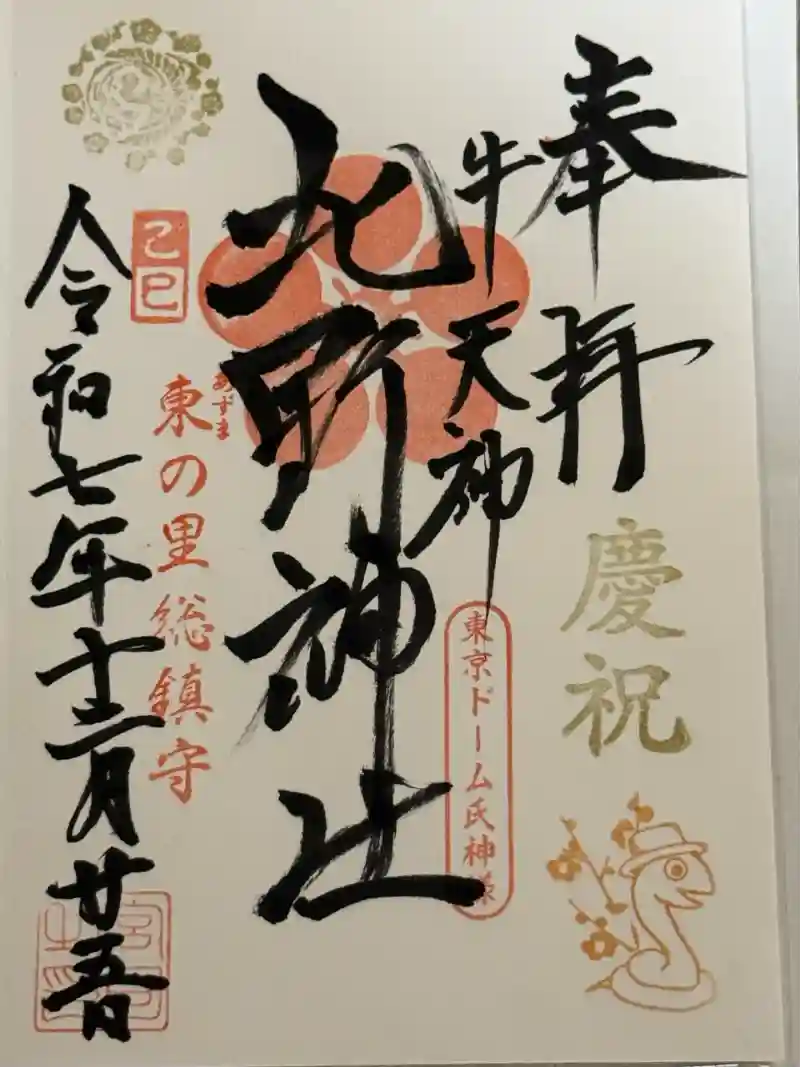 奉拝
慶祝
牛天神
東京ドーム氏神様
北野神社
あずま
東の里総鎮守
己巳
令和七年十二月廿五日